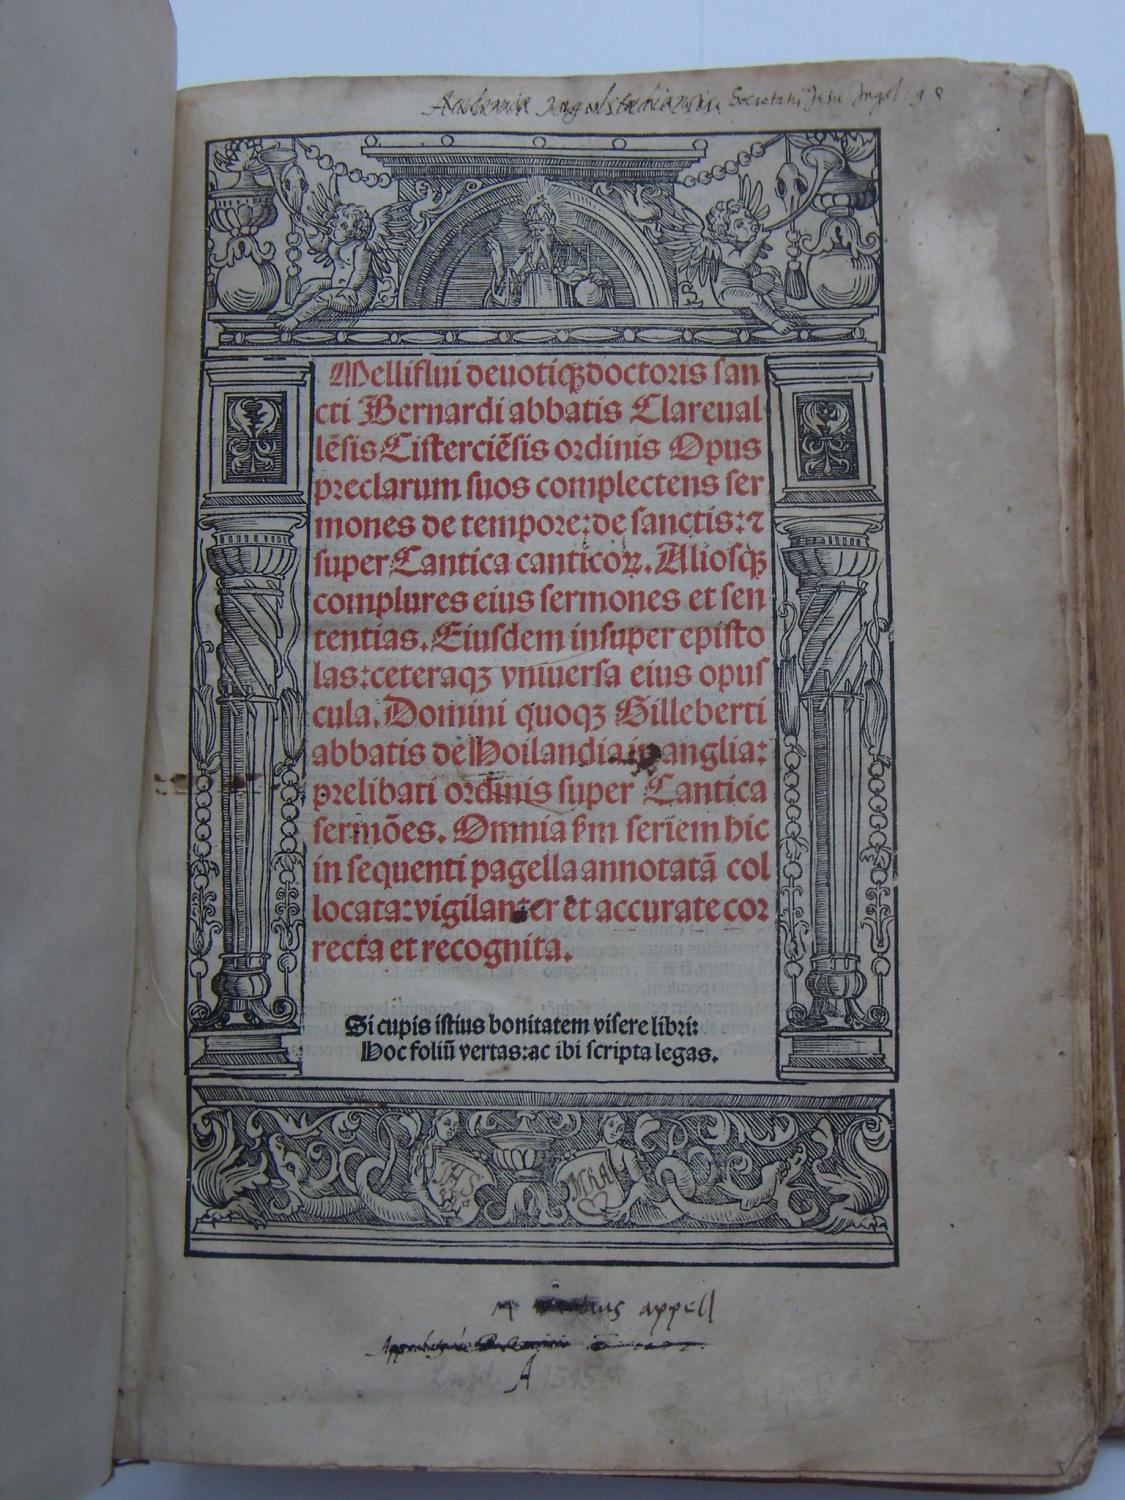 Societati Jesu Ingol:
Melliflui deuotiqꝫ doctoris san
cti Bernardi abbatis Clareual
lēsis Cisterciēsis ordinis Opus
preclarum suos complectens ser
mones de tempore: de sanctis: ⁊
super Cantica canticoꝝ. Aliosqꝫ
complures eius sermones et sen
tentias. Eiusdem insuper episto
las: ceteraqꝫ vniuersa eius opus
cula. Domini quoqꝫ Gilleberti
abbatis de Hoilandia in anglia:
prelibati ordinis super Cantica
sermões. Omnia ẜm seriem hic
in sequenti pagella annotatā col
locata: vigilanter et accurate cor
recta et recognita.
Si cupis istius bonitatem visere libri:
Hoc foliū vertas: ac ibi scripta legas.
IHS
MRA
appell
A